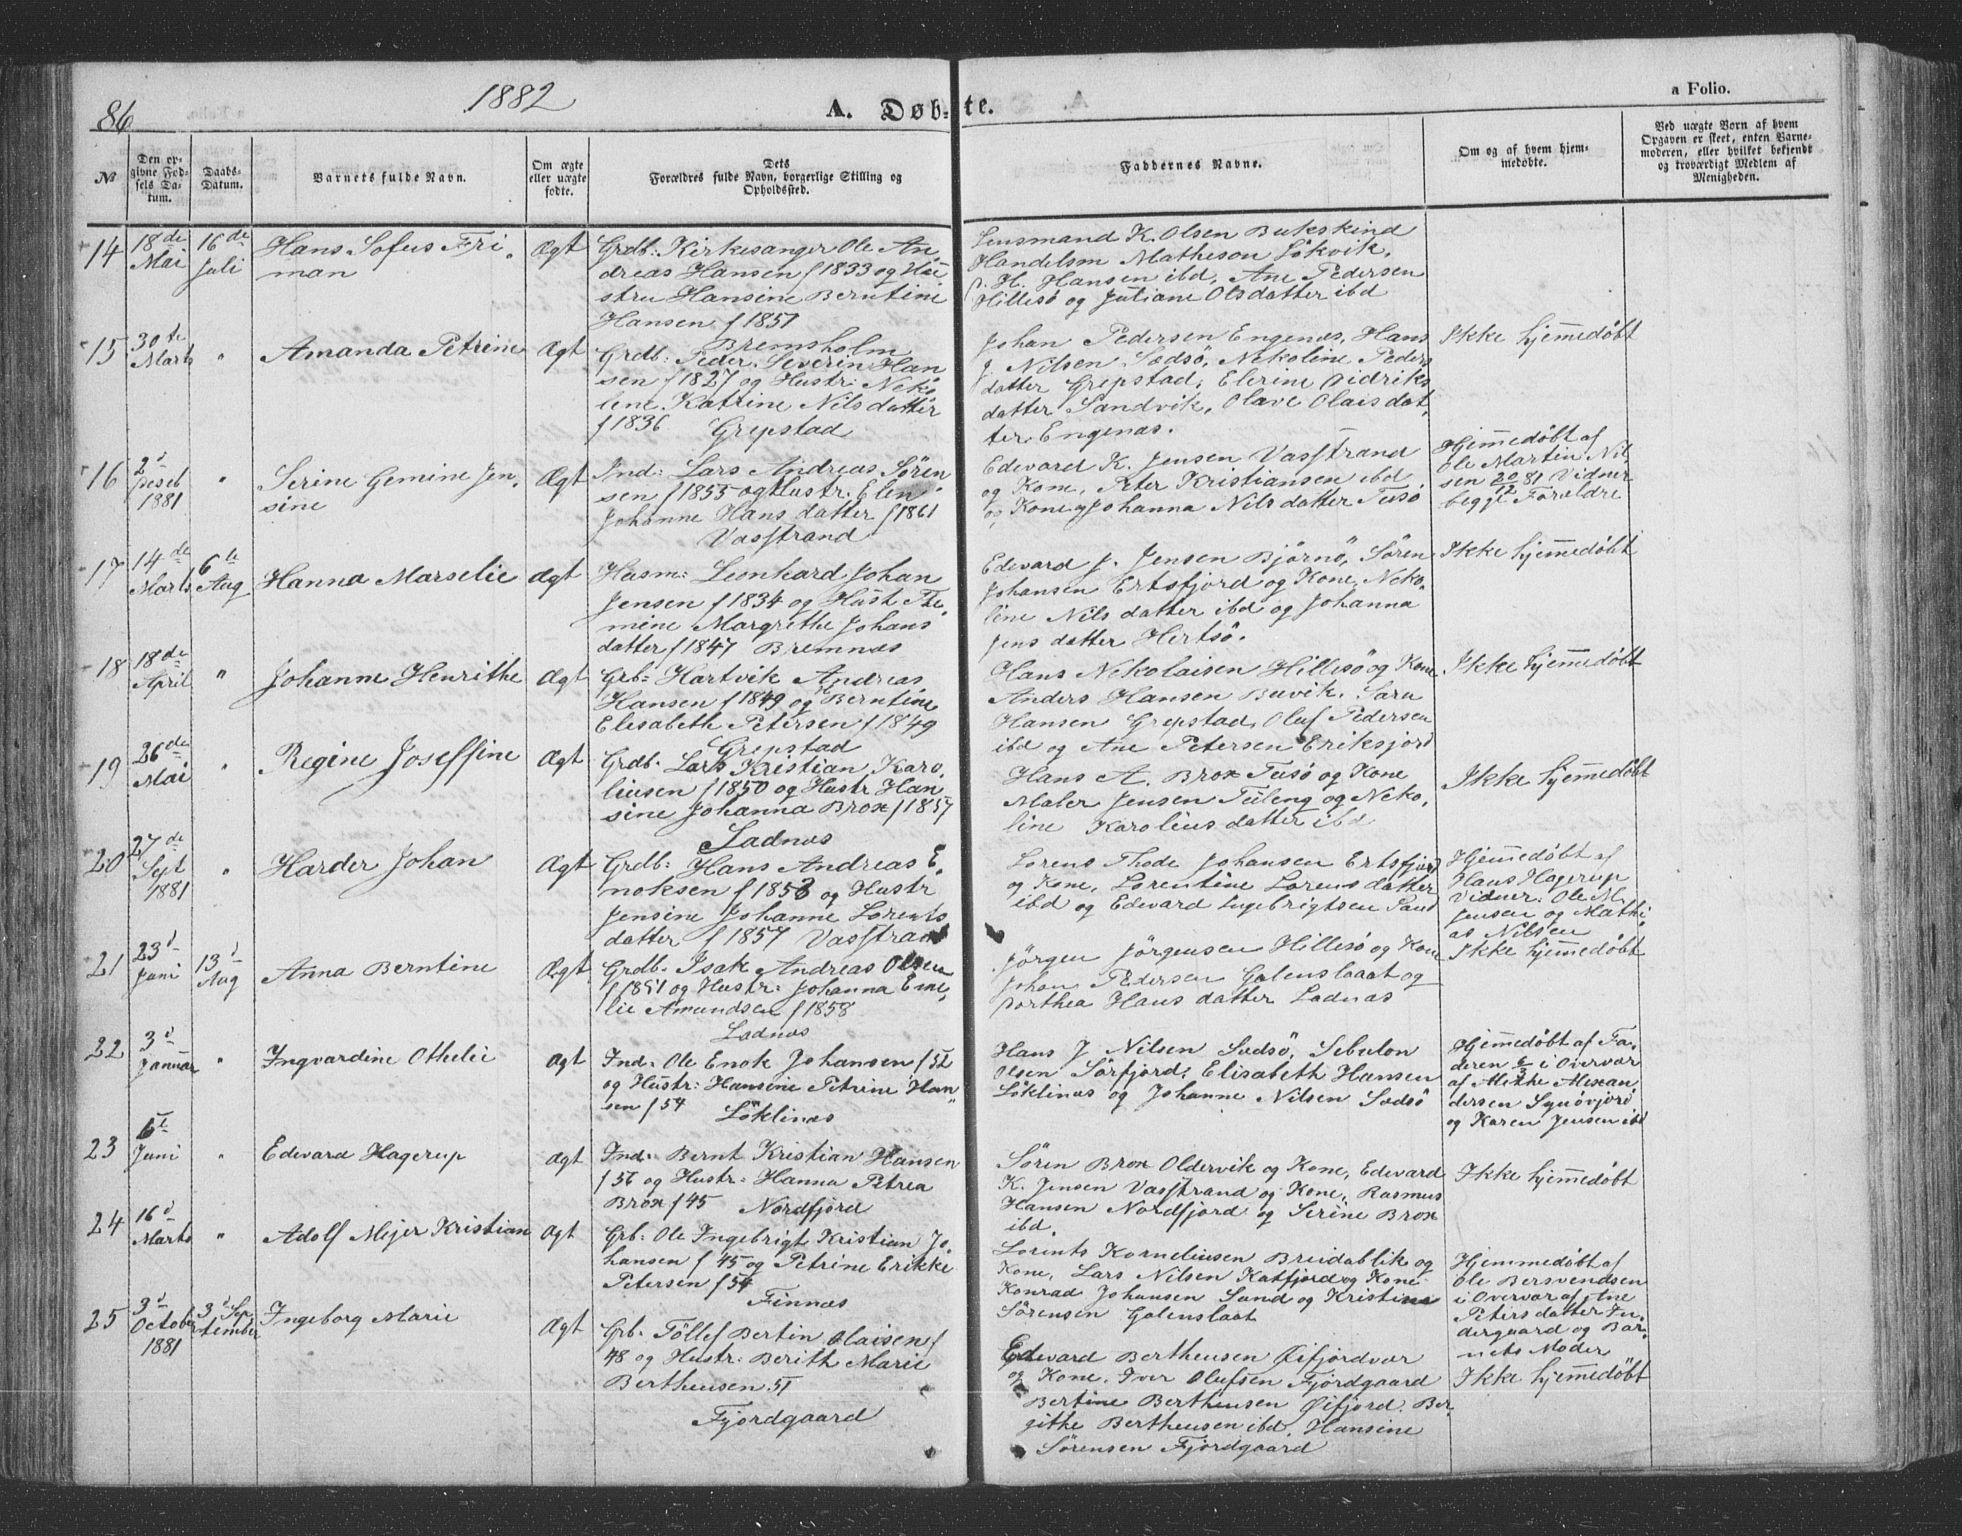 86
1882
A. Døb-te.
a Folio.
№
Den op-
givne Fød-
sels Da-
tum.
Daabs-
Datum.
Barnets fulde Navn.
Om ægte
eller uægte
fødte.
Dets
Forældres fulde Navn, borgerlige Stilling og
Opholdssted.
Faddernes Navne.
Om og af hvem hjem-
medøbte.
Ved uægte Børn af hvem
Opgaven er skeet, enten Barne-
moderen, eller hvilket bekjendt
og troværdigt Medlem af
Menigheden.
14
18de
Mai
16de
Juli
Hans Sofus Fri-
man
Ægt
Grdb: Kirkesanger Ole An-
dreas Hansen f 1833 og Hu-
stru Hansine Berntine
Hansen f 1851
Bremsholm
Lensmand K. Olsen Bukskind
Handelsm Matheson Lökvik,
H. Hansen ibd, Ane Pedersen
Hillesö og Juliane Olsdatter ibd
15
30te
Marts
"
Amanda Petrine
Ægt
Grdb: Peder Severin Han
sen f 1827 og Hustr: Neko
line Katrine Nilsdatter
f 1836 Grepstad
Johan Pedersen Engenæs, Hans
J. Nilsen Sødsö, Nekoline Peders
datter Grepstad, Elerine Didriks
datter Sandvik, Olave Olaisdat
ter Engenæs.
Ikke hjemmedöbt
16
2d
Deseb
1881
"
Serine Gemine Jen-
sine
Ægt
Ind: Lars Andreas Sören
sen f 1855 og Hustr: Elen
Johanne Hansdatter f 1861
Vasstrand
Edevard K. Jensen Vasstrand
og Kone, Peter Kristiansen ibd
og Kone og Johanna Nilsdatter Tusö
Hjemmedöbt af
Ole Martin Nil
sen 20/12 81 Vidner
begge Forældre
17
14de
Marts
6te
Aug
Hanna Marselie
Ægt
Husm: Leonhard Johan
Jensen f 1834 og Hust The
mine Margrethe Johans
datter f 1847 Bremnæs
Edevard J. Jensen Björnö, Sören
Johansen Ertsfjord og Kone, Neko-
line Nilsdatter ibd og Johanna
Jensdatter Hertsö.
Ikke hjemmedöbt
18
18de
April
"
Johanne Henrithe
Ægt
Grb: Hartvik Andreas
Hansen f 1849 og Berntine
Elisabeth Petersen f 1849
Grepstad
Hans Nekolaisen Hillesö og Kone
Anders Hansen Buvik, Sara
Hansen Grepstad, Oluf Pedersen
ibd og Ane Petersen Eriksjord
Ikke hjemmedöbt
19
26de
Mai
"
Regine Joseffine
Ægt
Grdb: Lars Kristian Karo-
liusen f 1850 og Hustr Han
sine Johanna Brox f 1857
Ladnæs
Hans A. Brox Tusö og Kone
Maler Jensen Tuleng og Neko-
line Karoliusdatter ibd
Ikke hjemmedöbt
20
27de
Sept
1881
"
Harder Johan
Ægt
Grdb: Hans Andreas E-
noksen f 1853 og Hustr
Jensine Johanne Lorents
datter f 1857 Vasstrand
Lorens Thode Johansen Ertsfjord
og Kone, Lorentine Lorensdatter
ibd og Edevard Ingebrigtsen Sand
Hjemmedöbt af
Hans Hagerup
Vidner: Ole M.
Jensen og Mathi
as Nilsen
21
23d
Juni
13d
Aug
Anna Berntine
Ægt
Grdb: Isak Andreas Olsen
f 1851 og Hustr: Johanna Eme-
lie Amundsen f 1858
Ladnæs
Jörgen Jörgensen Hillesö og Kone
Johan Pedersen Galenslaaat og
Dorthea Hansdatter Ladnæs
Ikke hjemmedöbt
22
3d
Januar
"
Ingvardine Othelie
Ægt
Ind: Ole Enok Johansen f 52
og Hustr: Hansine Petrine Han
sen f 54 Löklinæs
Hans J Nilsen Sødsö, Sebulon
Olsen Sörfjord, Elisabeth Hansen
Löklinæs og Johanne Nilsen Sødsö
Hjemmedöbt af Fa-
deren 6/3 i Overvær
af Mekke Mexan
dersen
og Karen Jensen ibd
23
6te
Juni
"
Edevard Hagerup
Ægt
Ind: Bernt Kristian Hansen
f 56 og Hustr: Hanna Petrea
Brox f 45 Nordfjord
Sören Brox Oldervik og Kone, Edevard
K. Jensen Vasstrand og Kone, Rasmus
Hansen Nordfjord og Serine Brox
ibd.
Ikke hjemmedöbt
24
16d
Marts
"
Adolf Mejer Kristian
Ægt
Grb: Ole Ingebrigt Kristian Jo-
hansen f 45 og Petrine Erikke
Petersen f 54
Finnæs
Lorints Korneliusen Breidablik og
Kone, Lars Nilsen Katfjord og Kone
Konrad Johansen Sand og Kristine
Sörensen Galenslaat
Hjemmedöbt af
Ole Bersvendsen
i Overvær af Ane
Petersdatter In-
dergaard og Bar-
nets Moder
25
3d
October
1881
3d Sep
tember
Ingeborg Marie
Ægt
Grb: Töllef Bertin Olaisen f
48 og Hustr: Berith Marie
Bertheusen 51
Fjordgaard
Edevard Bertheusen Öifjordvær
og Kone, Iver Olufsen Fjordgaard
Bertine Bertheusen Öifjord, Ber-
githe Bertheusen ibd, Hansine
Sörensen Fjordgaard
Ikke hjemmedöbt